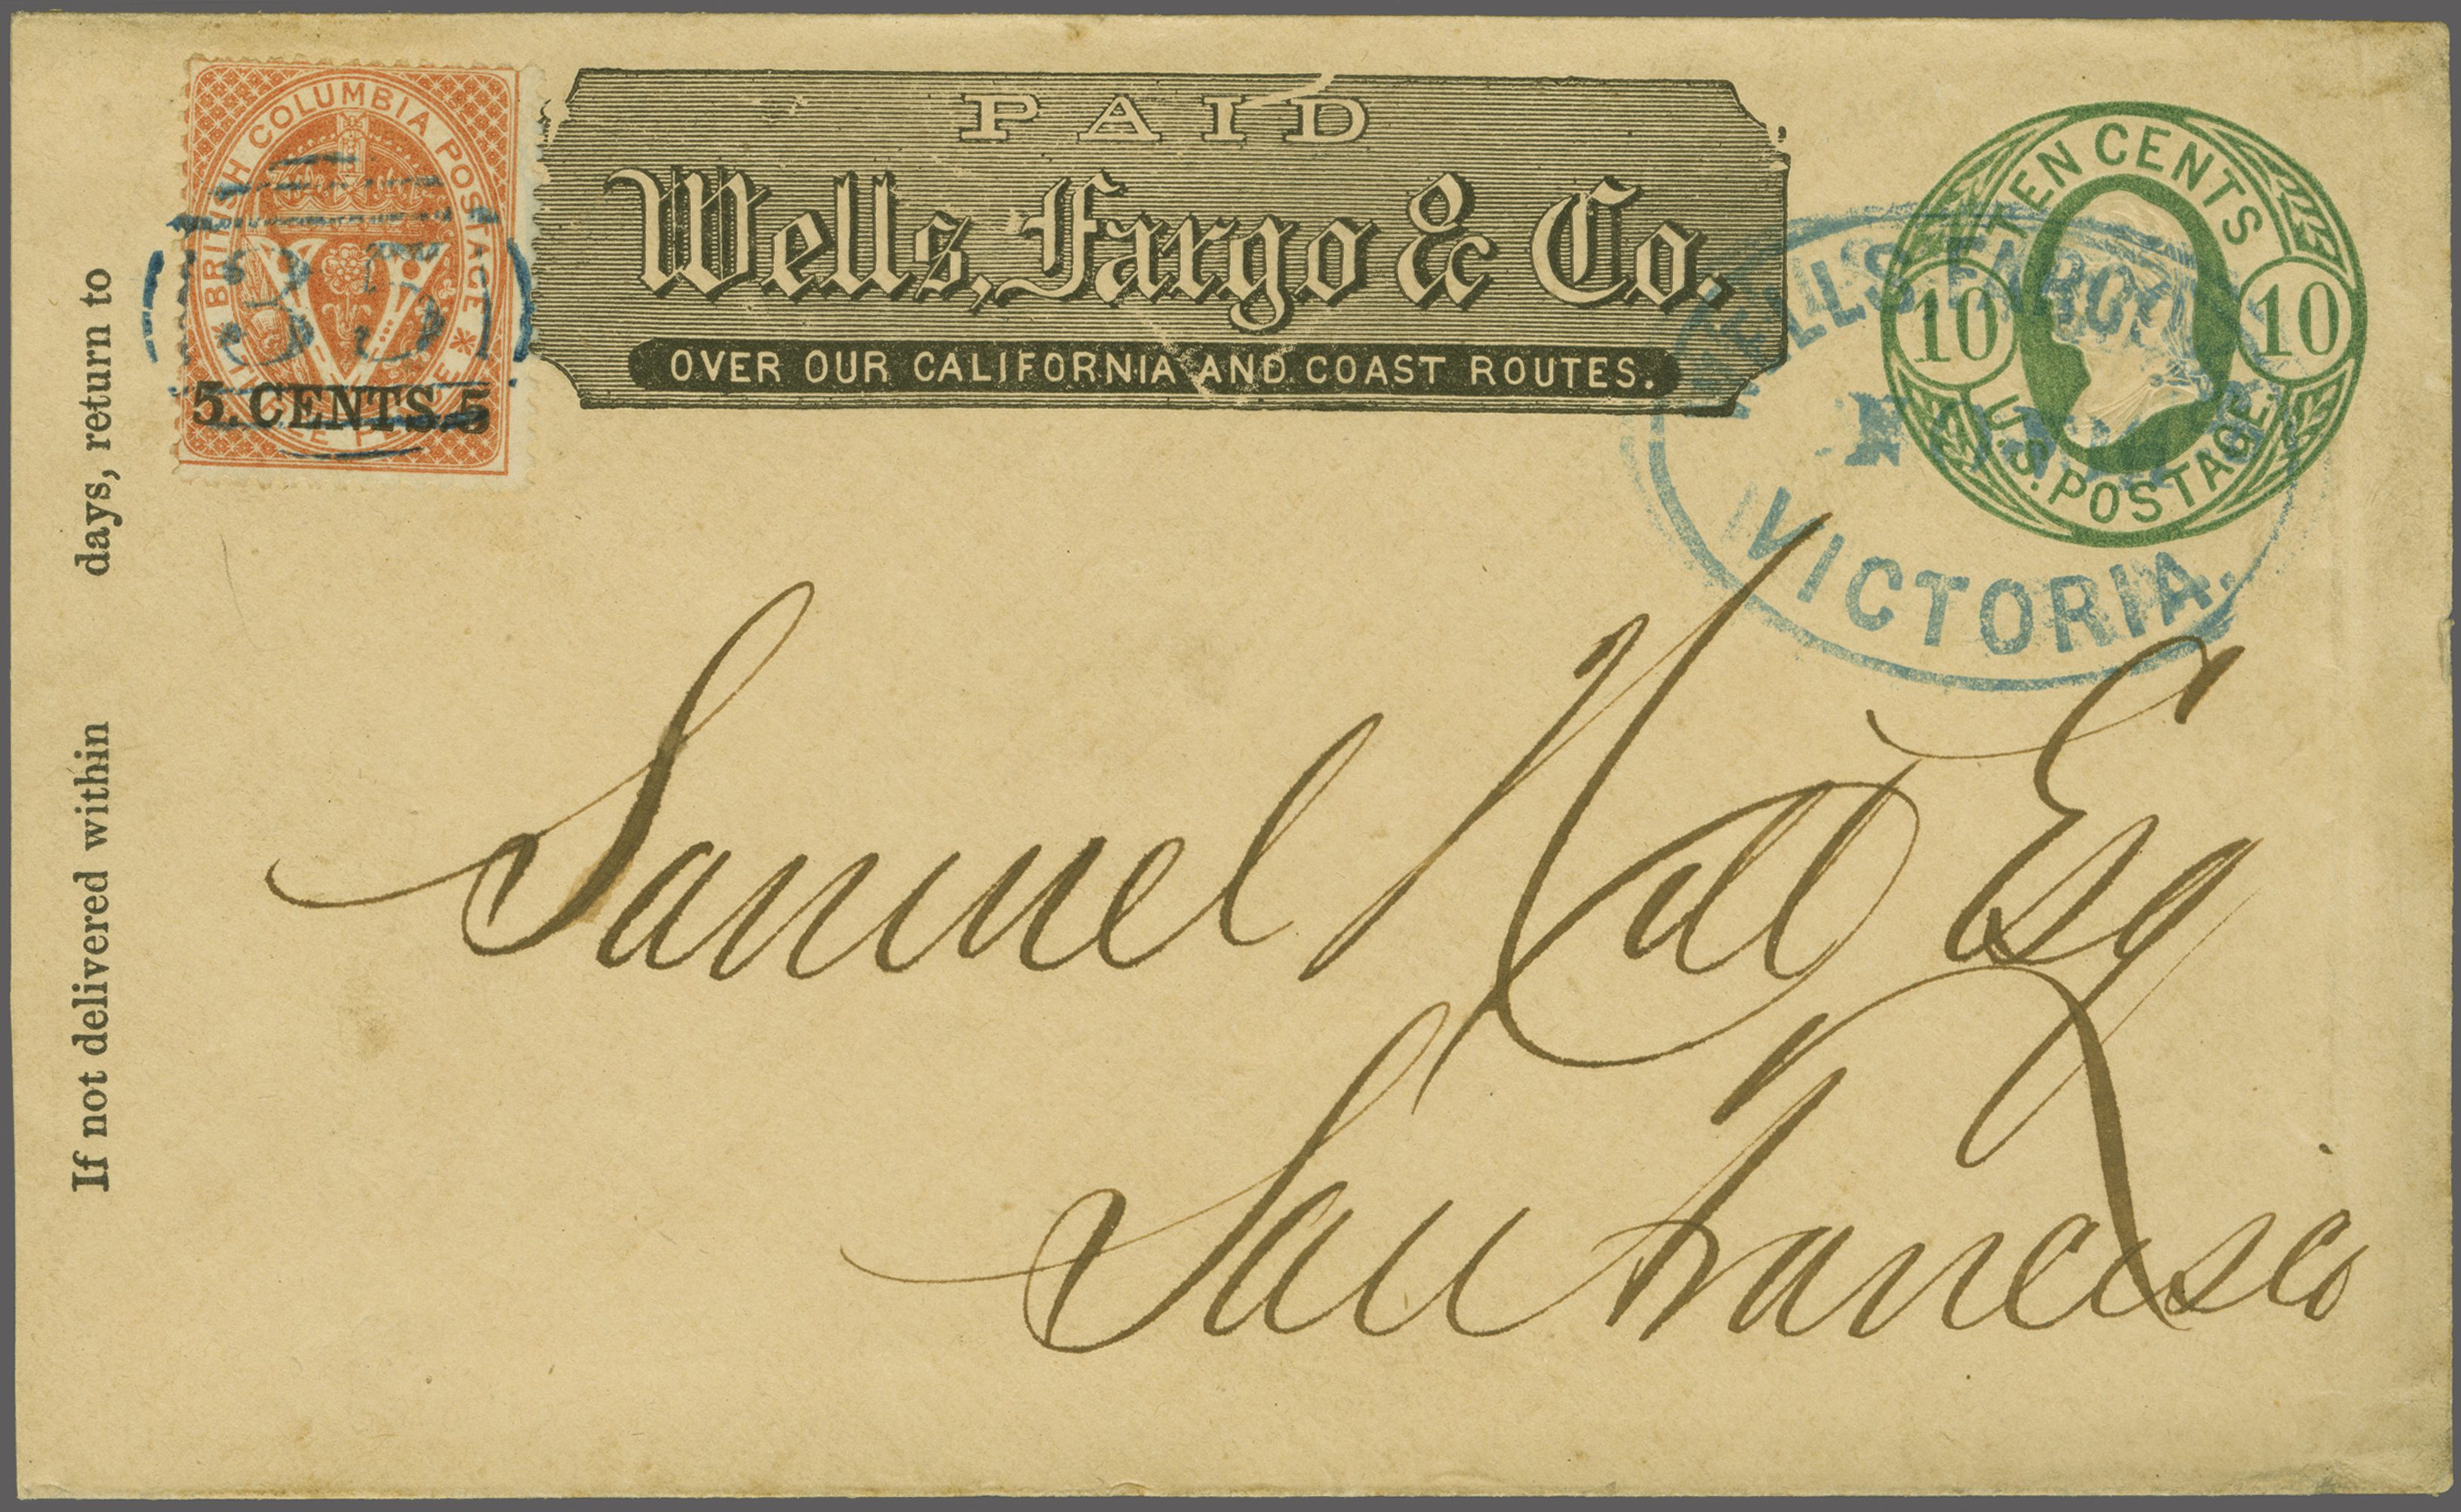 BRITISH COLUMBIA POSTAGE
5. CENTS. 5
PAID
Wells, Fargo & Co.
OVER OUR CALIFORNIA AND COAST ROUTES.
TEN CENTS
10 10
U.S. POSTAGE.
WELLS FARGO
VICTORIA.
If not delivered within days, return to
Samuel Hall Esq
San Francisco